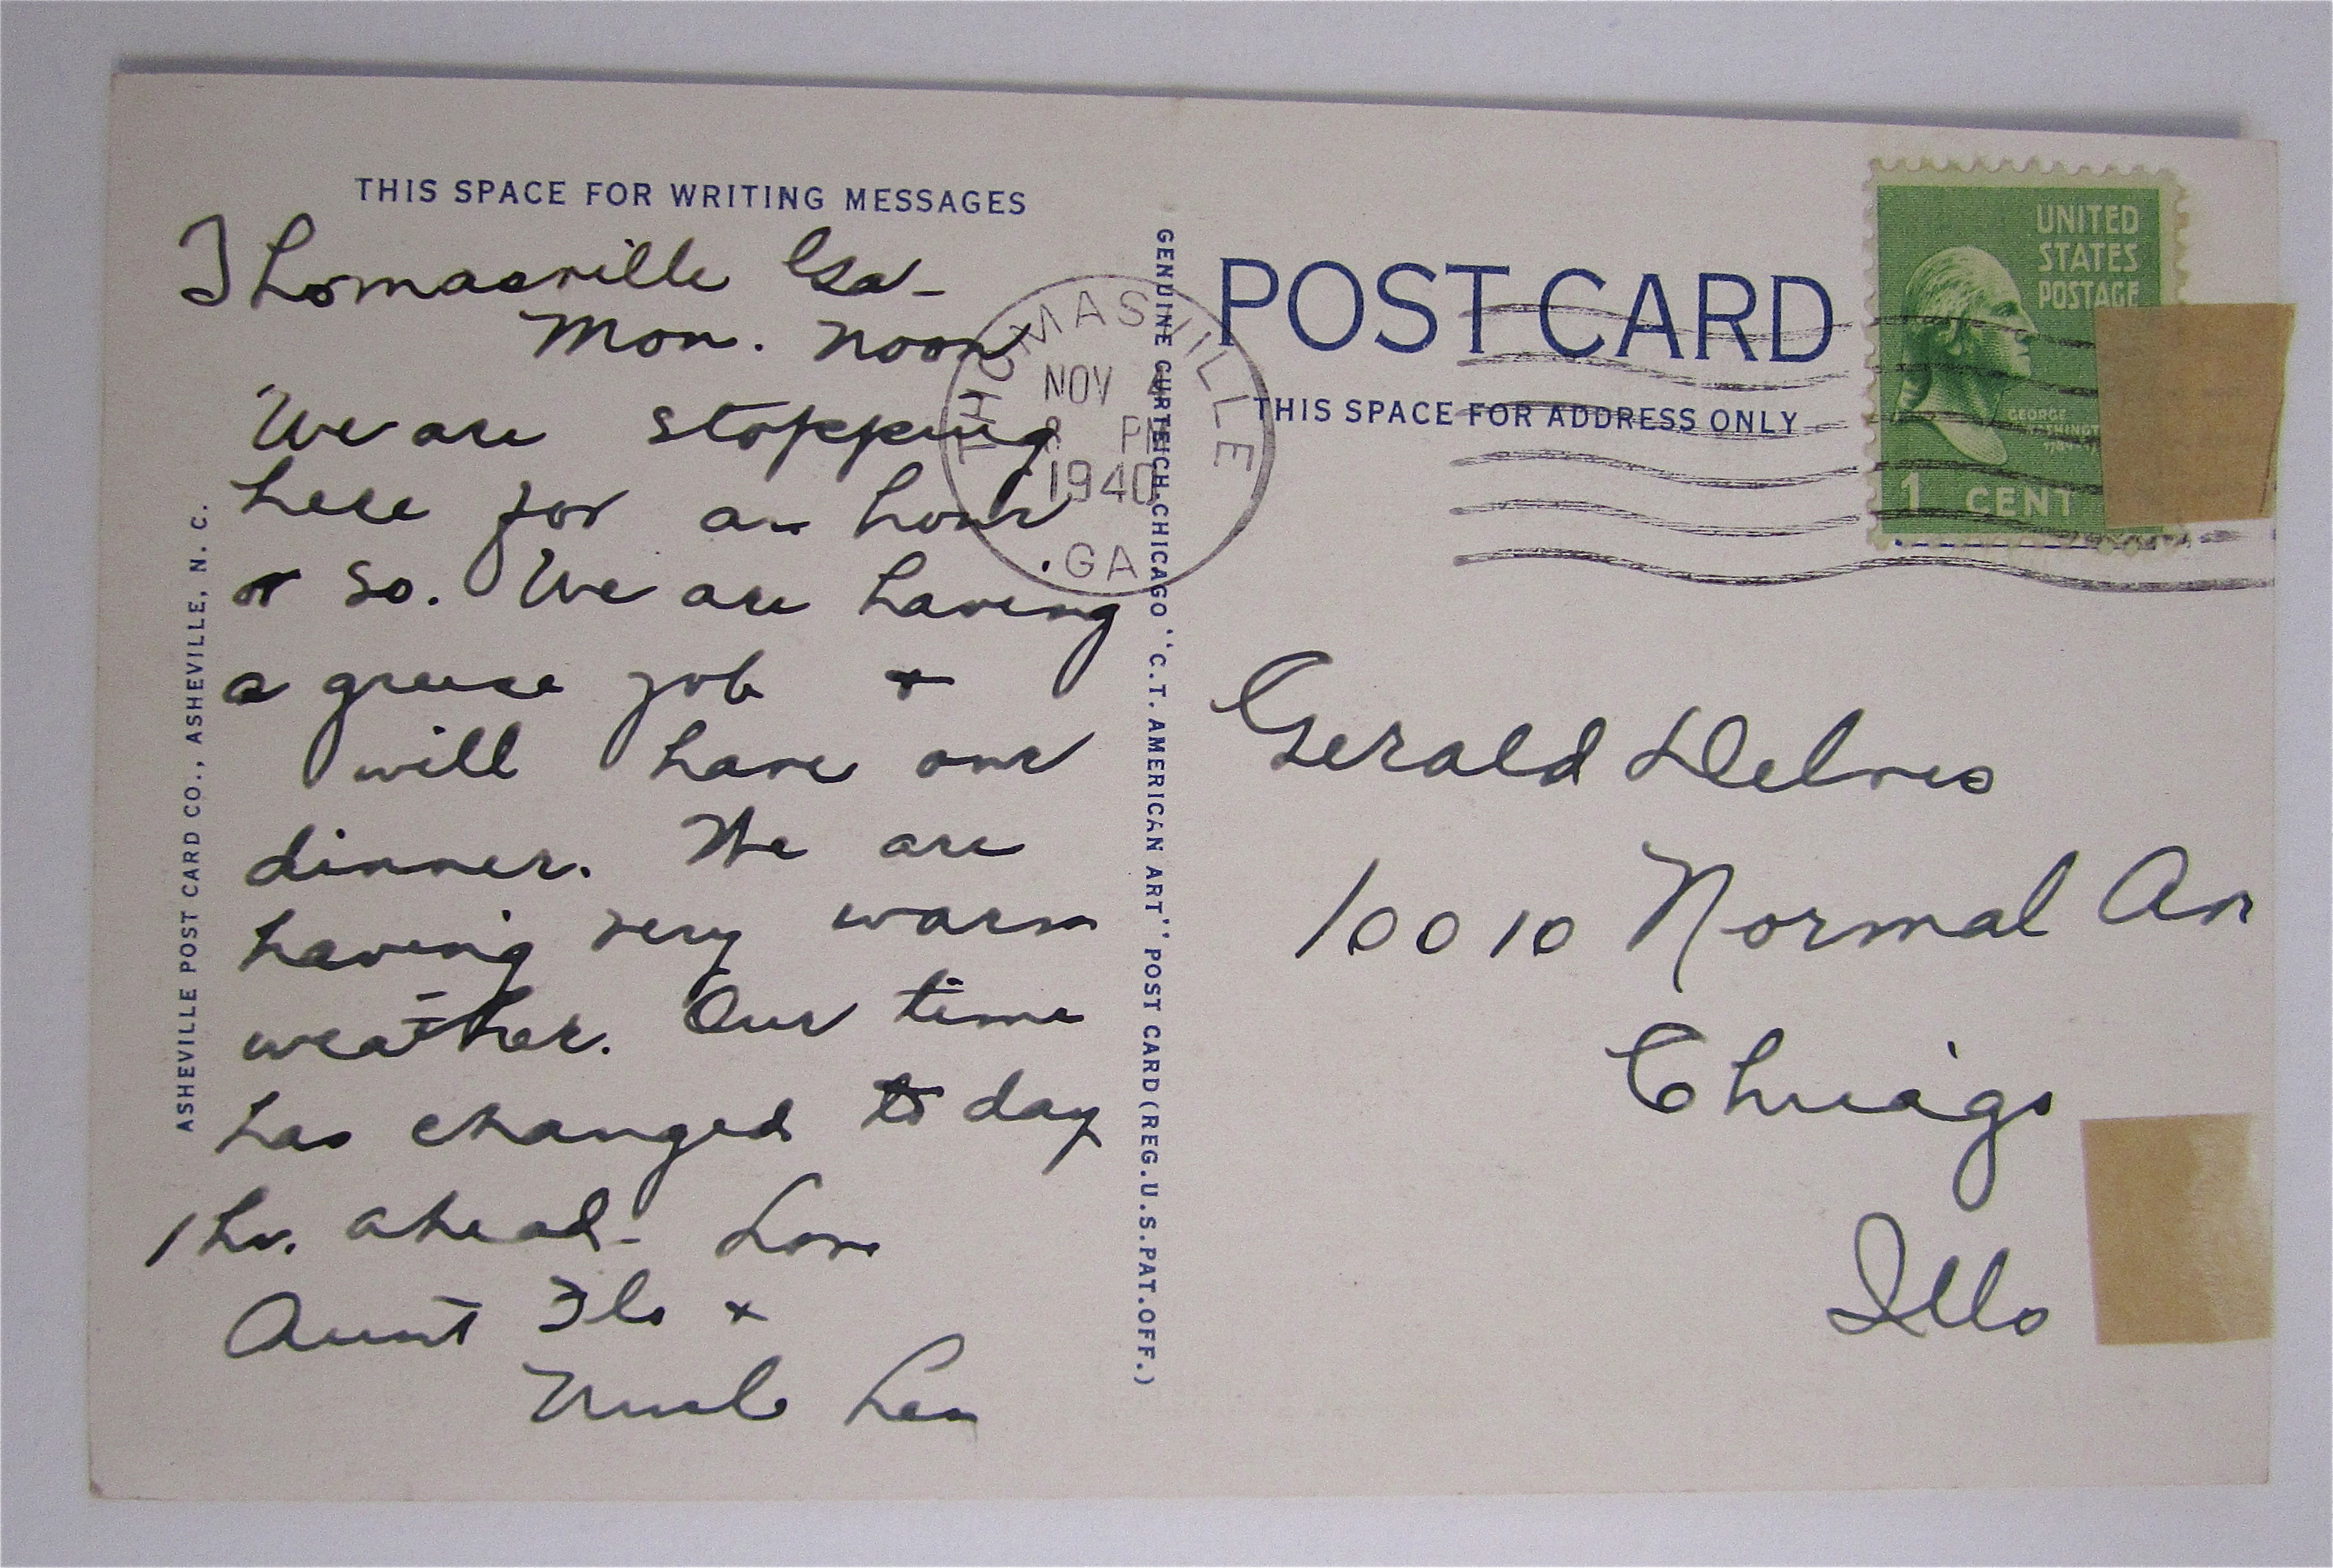 THIS SPACE FOR WRITING MESSAGES
Thomasville Ga-
Mon. noon
We are stopping
here for an hour
or so. We are having
a grease job +
will have our
dinner. We are
having very warm
weather. Our time
has changed to day
1 hr. ahead- Love
Aunt Flo +
Uncle Len
ASHEVILLE POST CARD CO., ASHEVILLE, N. C.
GENUINE CURTEICH-CHICAGO "C.T. AMERICAN ART" POST CARD (REG. U.S. PAT. OFF.)
THOMASVILLE
NOV 4
PM
1940
GA.
POST CARD
THIS SPACE FOR ADDRESS ONLY
UNITED
STATES
POSTAGE
GEORGE
1 CENT
Gerald Delves
10010 Normal Av
Chicago
Ills